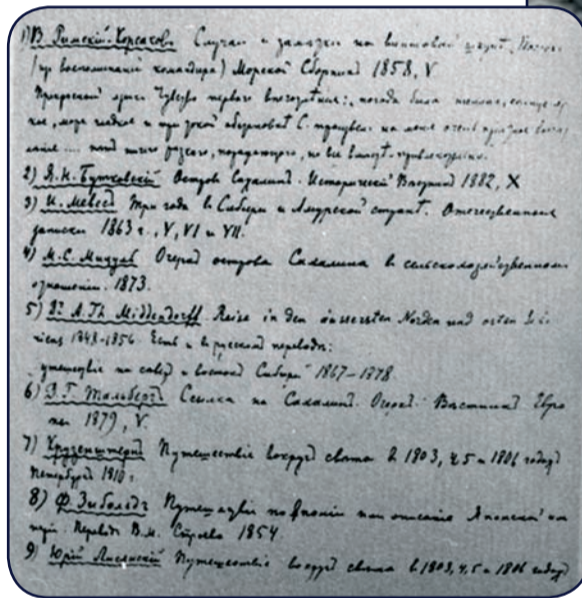 1) В. Римскій-Корсаковъ Случаи и замѣтки на винтовой шкунѣ „Востокъ"
(изъ воспоминаній командира) Морской Сборникъ 1858, V
первого погода была
море и С. на меня очень
но все вмѣстѣ
2) Я. Н. Бутковскій Островъ Сахалинъ. Историческій Вѣстникъ 1882, X
3) И. Мевесъ Три года въ Сибири и Амурской странѣ. Отечественныя
записки 1863 г., V, VI и VII.
4) М. С. Мицуль Очеркъ острова Сахалина въ сельскохозяйственномъ
отношеніи. 1873.
5) Dr A. Th. Middendorff. Reise in den äussersten Norden und osten Sibi-
riens 1848-1856. Есть и въ русскомъ переводѣ:
путешествіе на сѣверъ и востокъ Сибири 1867-1878.
6) Д. Г. Тальбергъ Ссылка на Сахалинъ. Очеркъ. Вѣстникъ Евро
пы 1879, V.
7) Крузенштернъ Путешествіе вокругъ свѣта въ 1803, 4, 5 и 1806 годахъ
Петербургъ 1810 г.
8) Ф. Зибольдъ Путешествіе по Японіи или описаніе Японской им
періи. Переводъ В. М. Строева 1854
9) Юрій Лисянскій Путешествіе вокругъ свѣта въ 1803, 4, 5 и 1806 годахъ